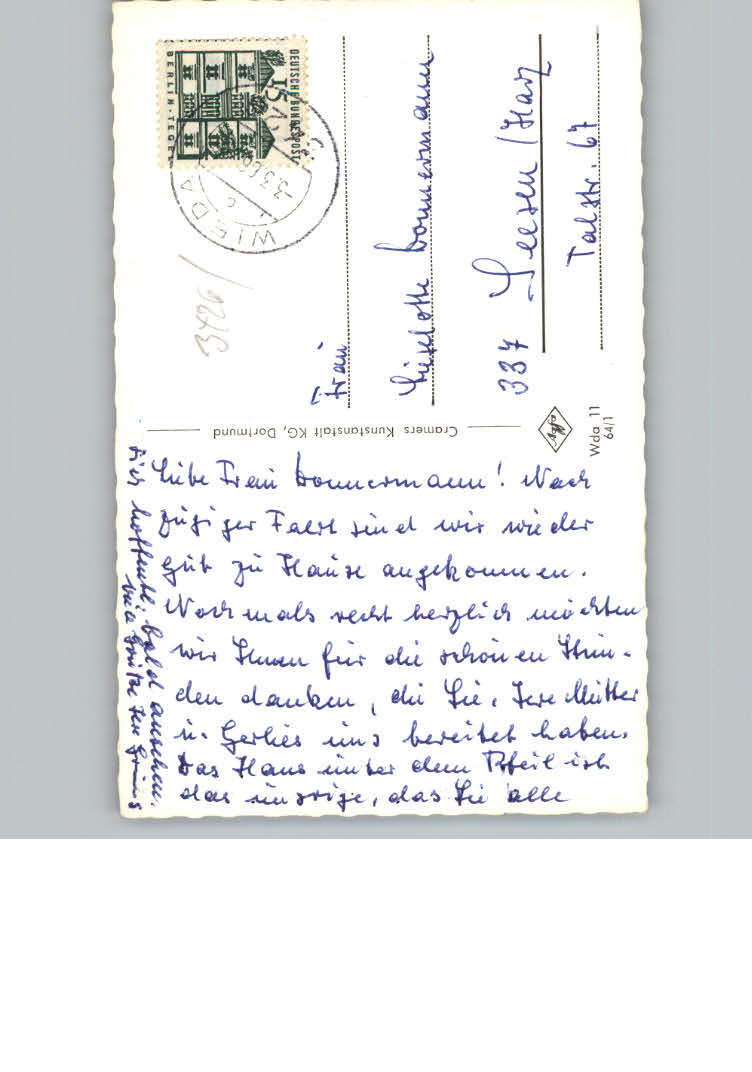 Liebe Frau Donnermann! Nach
zügiger Fahrt sind wir wieder
gut zu Hause angekommen.
Nochmals recht herzlich möchten
wir Ihnen für die schönen Stun-
den danken, die Sie, Ihre Mutter
u. Gerlies uns bereitet haben.
Das Haus unter dem Pfeil ist
das unsrige, das Sie alle
sich hoffentl. bald ansehen.
Viele Grüße
Frau
Lieselotte Donnermann
337 Seesen/Harz
Talstr. 67
DEUTSCHE BUNDESPOST
15
BERLIN-TEGEL
WIEDA
3426/
Cramers Kunstanstalt KG, Dortmund
Agfa
Wda 11
64/1